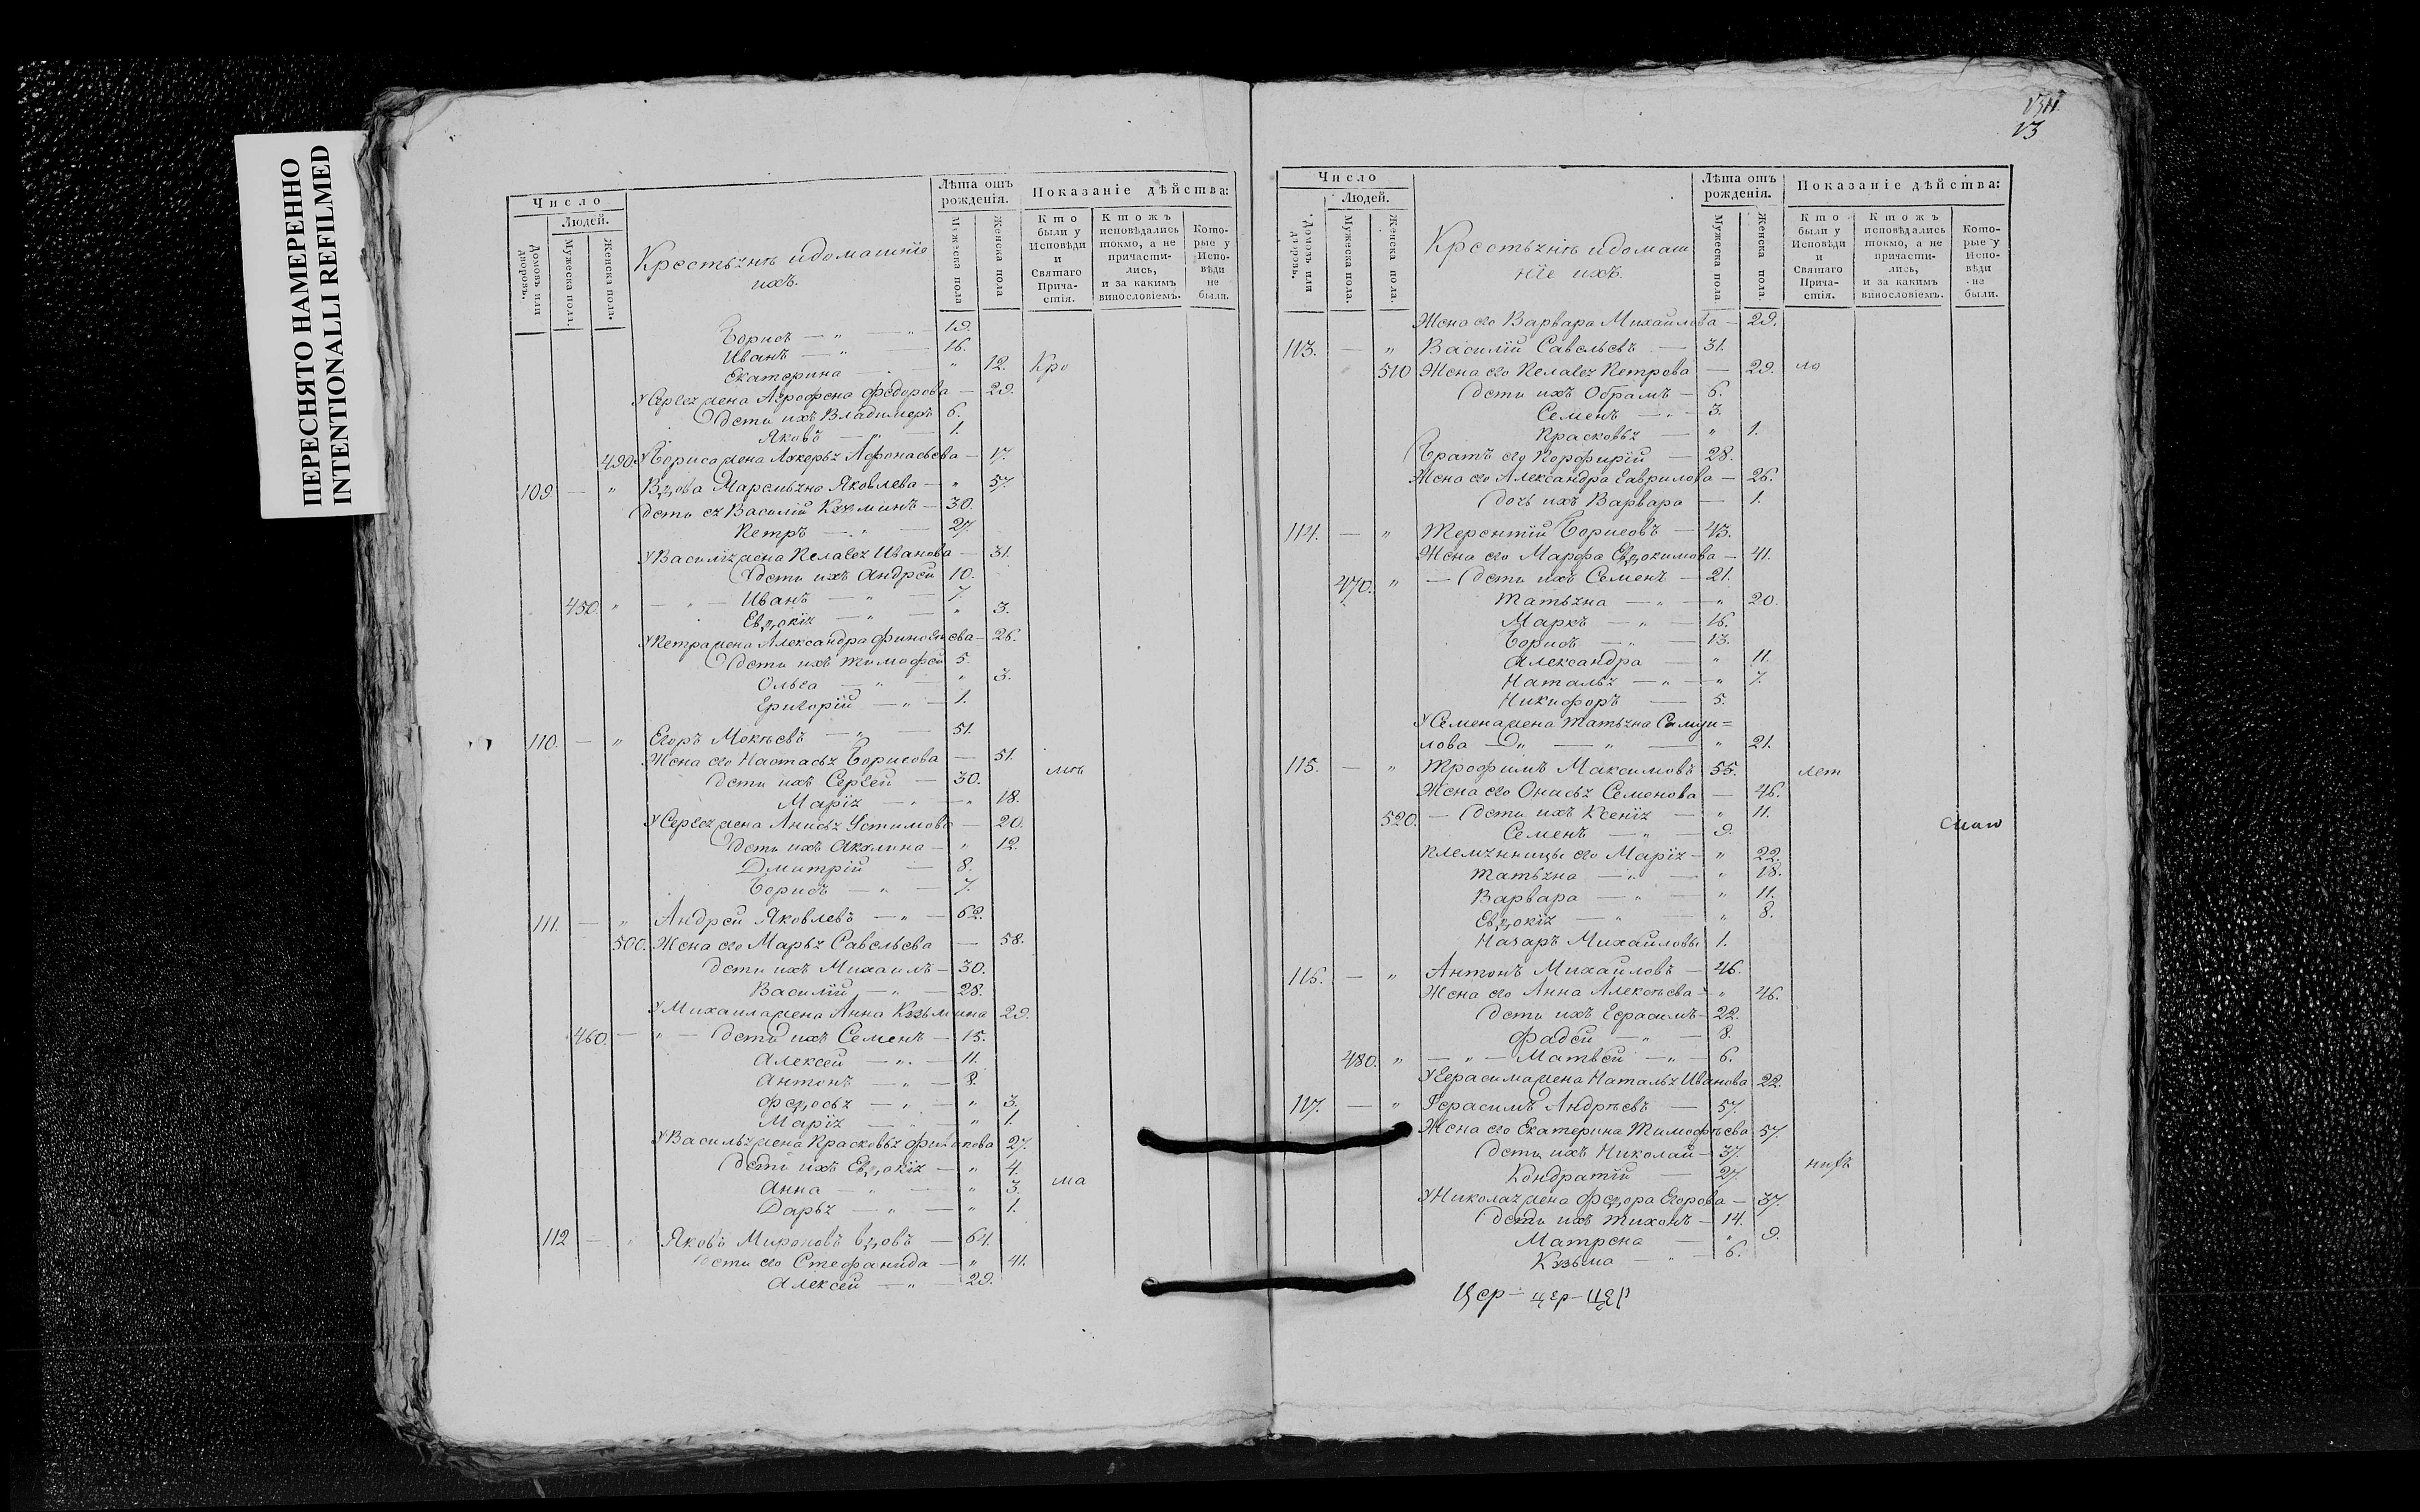 ПЕРЕСНЯТО НАМЕРЕННО
INTENTIONALLI REFILMED
Число
Людей.
Домовъ или дворовъ.
Мужеска пола.
Женска пола.
Крестьянѣ идомашнїе
ихъ.
Лѣта отъ рожденія.
Мужеска пола
Женска пола
Показаніе дѣйства:
Кто были у Исповѣди и Святаго Причастія.
Ктожъ исповѣдались токмо, а не причастились, и за какимъ винословіемъ.
Которые у Исповѣди не были.
Борисъ — " — " — 19.
Иванъ — " — 16.
Екатерина — " 12. Кро
У Сергея жена Агрофена Федорова — 29.
Дети ихъ Владимеръ 6.
Яковъ — " — 1.
490. У Бориса жена Лукерья Афонасьева — 17.
109. — " Вдова Маремьяна Яковлева — " 57.
Дети ея Василїй Кузминъ — 30.
Петръ — " — 27.
У Василїя жена Пелагея Иванова — 31.
Дети ихъ Андрей 10.
450. " — " — Иванъ — " — 7.
Евдокїя — " — " 3.
У Петра жена Александра Финогѣева — 26.
Дети ихъ Тимофей 5.
Ольга — " — " 3.
Григорїй — " — 1.
110. — " Егоръ Мокѣевъ — " — 51.
Жена его Настасья Борисова — 51.
Дети ихъ Сергей — 30.
Марїя — " — " 18.
У Сергея жена Анисья Устимова — 20.
Дети ихъ Акулина — " 12.
Дмитрїй — 8.
Борисъ — " — 7.
111. — " Андрей Яковлевъ — " — 62.
500. Жена его Марья Савельева — 58.
Дети ихъ Михаилъ — 30.
Василїй — " — 28.
У Михаила жена Анна Кузьмина 29.
460. — " — Дети ихъ Семенъ — 15.
Алексей — " — 11.
Антонъ — " — 8.
Федосья — " — " 3.
Марїя — " — " 1.
У Василья жена Прасковья Филипова 27.
Дети ихъ Евдокїя — " 4.
Анна — " — " 3. ма
Дарья — " — " 1.
112 — " Яковъ Мироновъ вдовъ — 64.
Дети его Стефанида — " 41.
Алексей — " — 29.
13
Число
Людей.
Домовъ или дворовъ.
Мужеска пола.
Женска пола.
Крестьянѣ идомаш
нїе ихъ.
Лѣта отъ рожденія.
Мужеска пола
Женска пола.
Показаніе дѣйства:
Кто были у Исповѣди и Святаго Причастія.
Ктожъ исповѣдались токмо, а не причастились, и за какимъ винословіемъ.
Которые у Исповѣди не были.
Жена его Варвара Михайлова — 29.
113. — " Василїй Савельевъ — 31.
510 Жена его Пелагея Петрова — 29. ло
Дети ихъ Обрамъ — 6.
Семенъ — " — 3.
Прасковья — " 1.
Братъ его Порфирїй — 28.
Жена его Александра Гаврилова — 26.
Дочь ихъ Варвара — 1.
114. — " Терентїй Борисовъ — 43.
Жена его Марфа Евдокимова — 41.
470. " — Дети ихъ Семенъ — 21.
Татьяна — " — " 20.
Маркъ — " — 16.
Борисъ — " — 13.
Александра — " 11.
Наталья — " — " 7.
Никифоръ — 5.
У Семена жена Татьяна Самуи=
лова — " — " — " 21.
115. — " Трофимъ Максимовъ 55. лет
Жена его Онисья Семенова — 46.
520. — Дети ихъ Ксенїя — " 11.
Семенъ — " — 9.
Племянницы его Марїя — " 22.
Татьяна — " — " 18.
Варвара — " — " 11.
Евдокїя — " — " 8.
Назаръ Михайловы 1.
116. — " Антонъ Михайловъ — 46.
Жена его Анна Алексѣева — " 46.
Дети ихъ Герасимъ — 22.
Фадей — " — 8.
480. " — " — Матвей — " — 6.
У Герасима жена Наталья Иванова 22.
117. — " Герасимъ Андрѣевъ — 57.
Жена его Екатерина Тимофѣева 57.
Дети ихъ Николай — 37.
Кондратїй — 27.
У Николая жена Федора Егорова — 37.
Дети ихъ Тихонъ — 14.
Матрена — " 9.
Кузьма — " — 6.